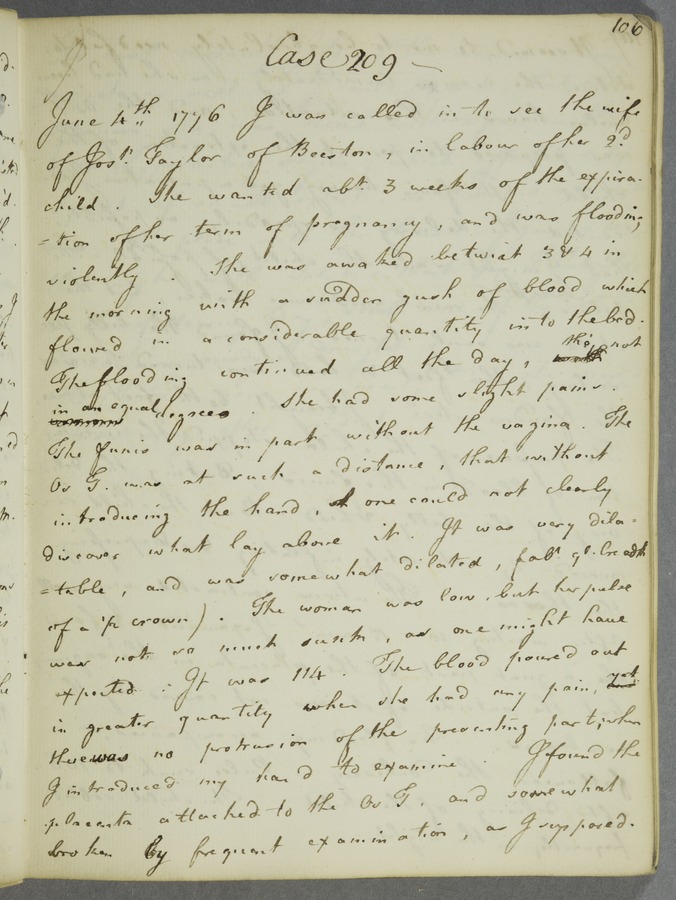 106
Case 209 —
June 4th. 1776 I was called in to see the wife
of Josh. Taylor of Beeston, in labour of her 2d.
child. She wanted abt. 3 weeks of the expira-
=tion of her term of pregnancy, and was flooding
violently. She was awaked betwixt 3 & 4 in
the morning with a sudden gush of blood which
flowed in a considerable quantity into the bed.
The flooding continued all the day, tho' not
in an equal degree. She had some slight pains.
The funis was in part without the vagina. The
Os T. was at such a distance, that without
introducing the hand, one could not clearly
discover what lay above it. It was very dila-
=table, and was somewhat dilated, (abt. ye. breadth
of a 1/2 crown). The woman was low, but her pulse
was not so much sunk, as one might have
expected: It was 114. The blood poured out
in greater quantity when she had any pain,
there was no protrusion of the presenting part, when
I introduced my hand to examine. I found the
placenta attached to the Os T. and somewhat
broken by frequent examination, as I supposed.